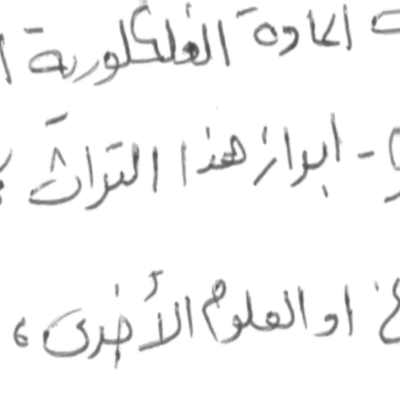 المادة الفلكلورية
- ابراز هذا التراث
او العلوم الأخرى،